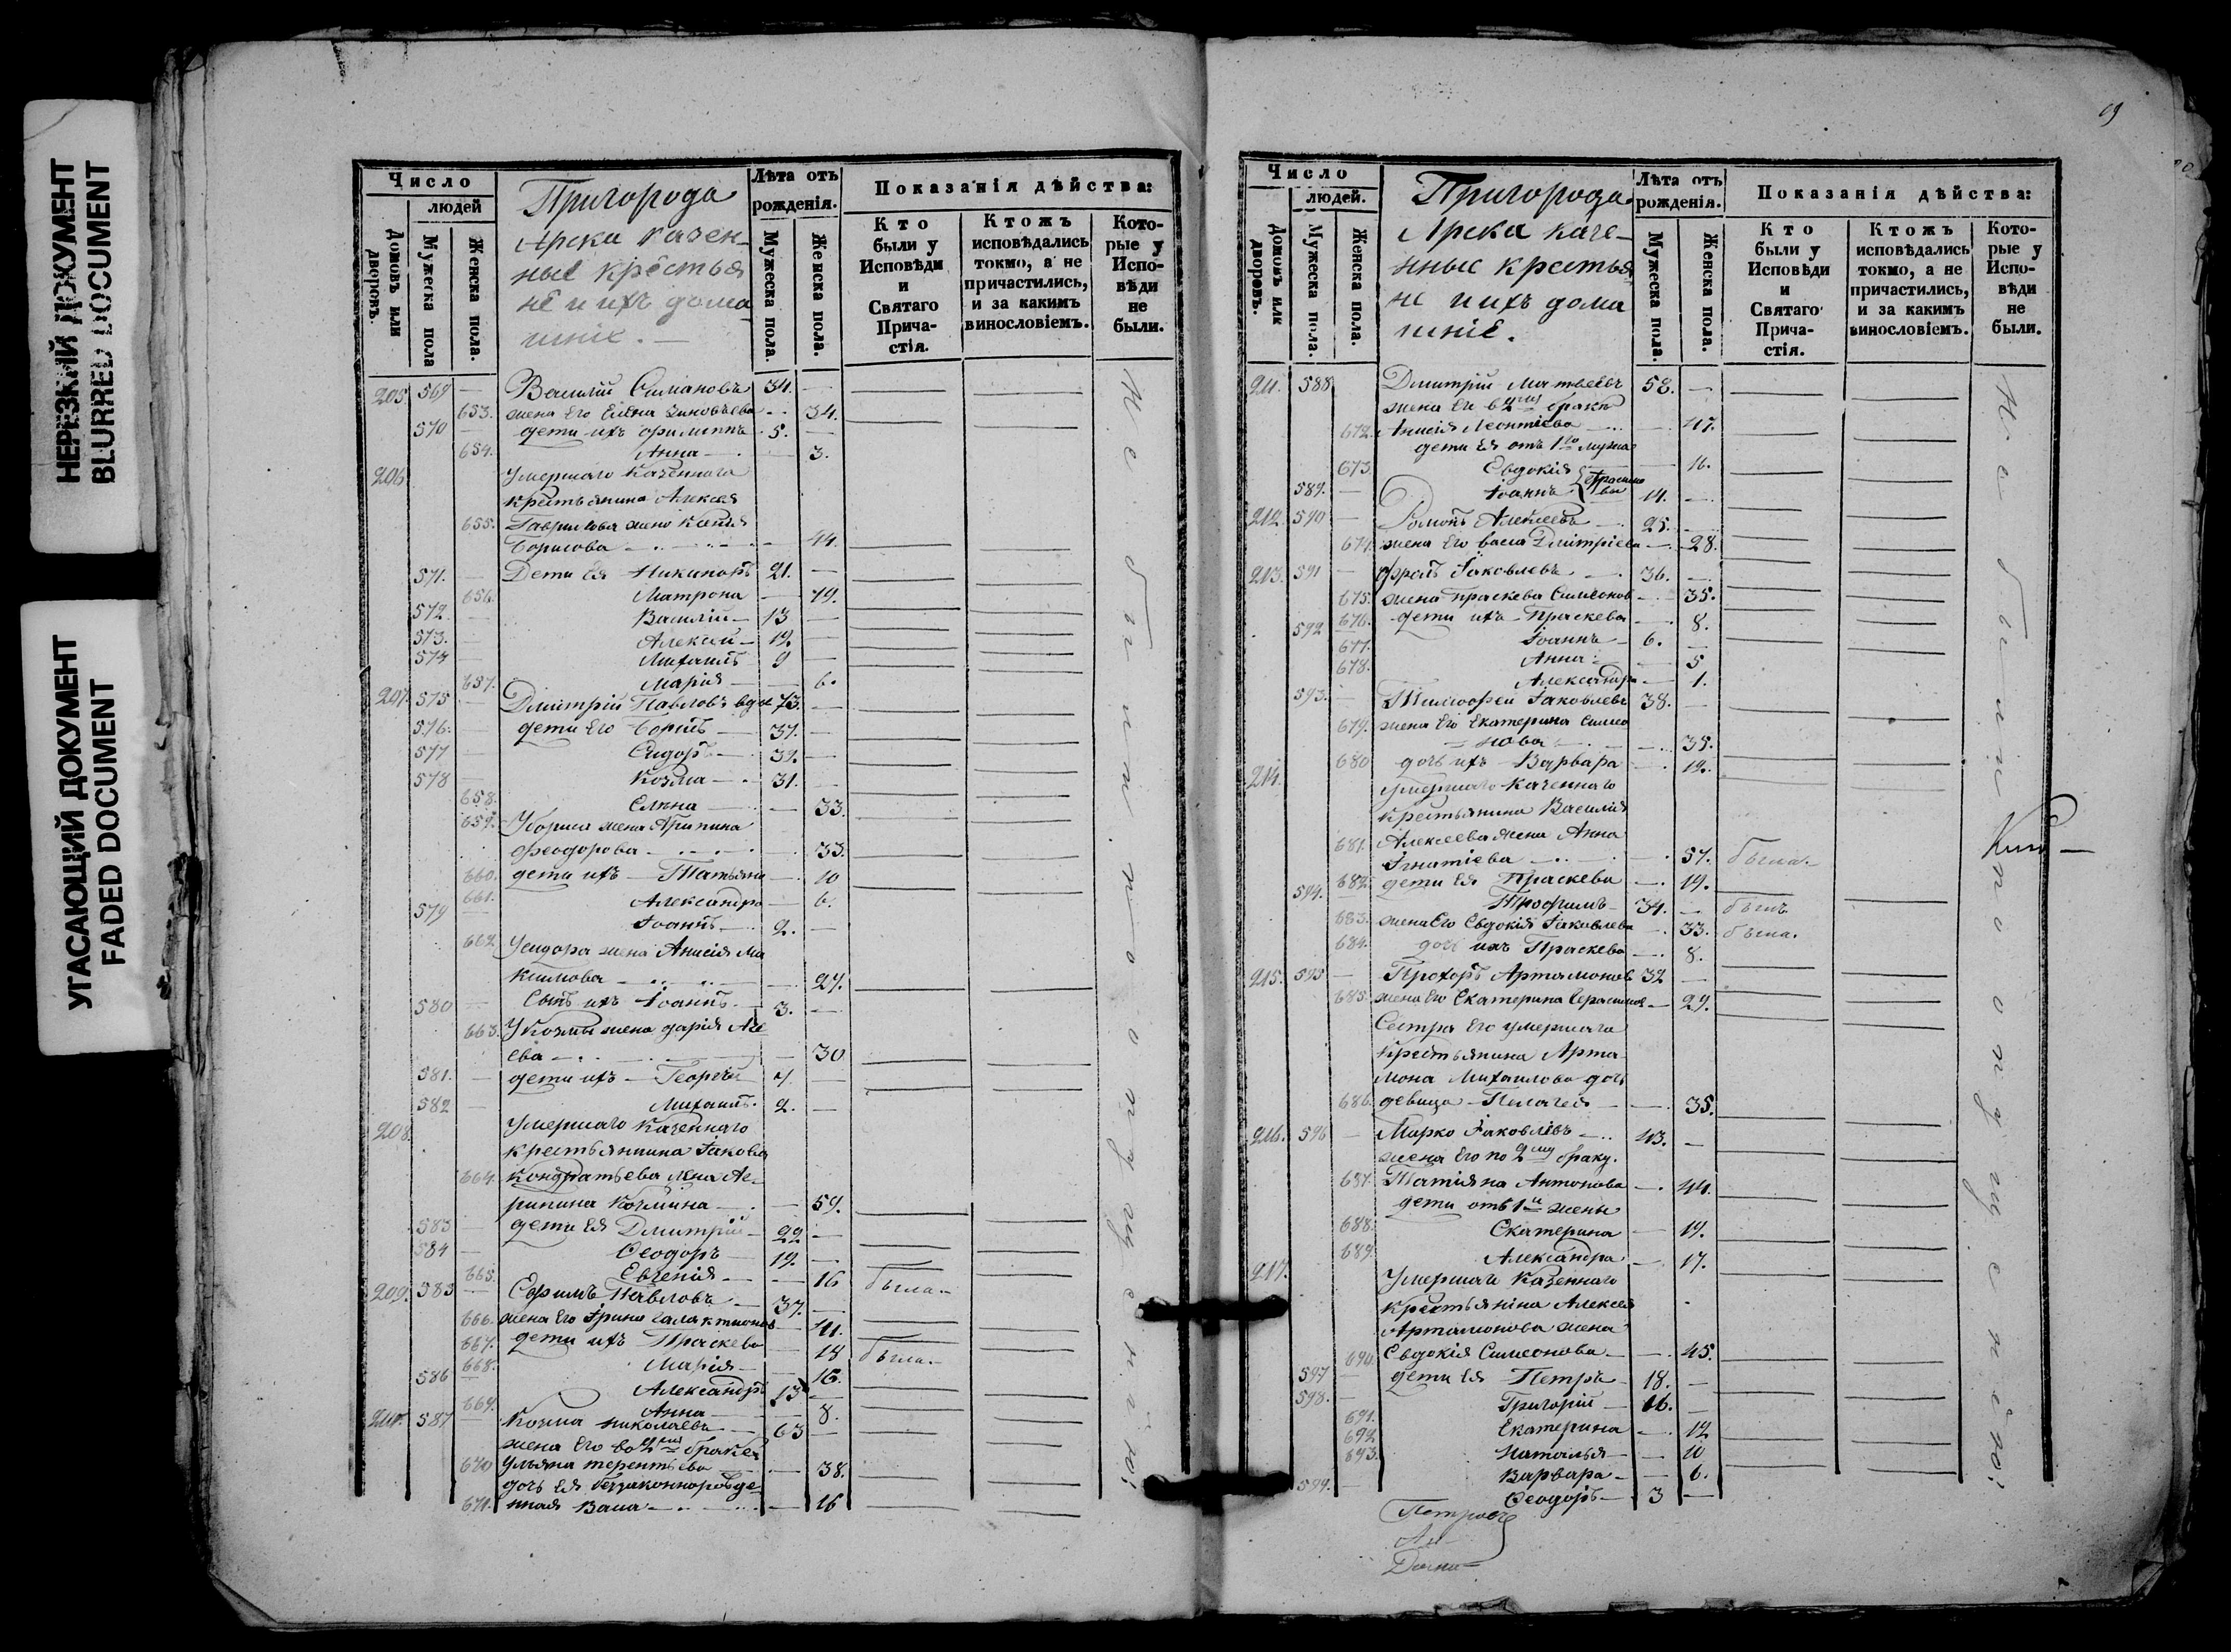 НЕРЕЗКИЙ ДОКУМЕНТ
BLURRED DOCUMENT
УГАСАЮЩИЙ ДОКУМЕНТ
FADED DOCUMENT
Число
людей
Домовъ или дворовъ.
Мужеска пола
Женска пола.
Пригорода
Арска казен-
ные крестья
не и ихъ дома
шніе. —
Лѣта отъ рожденія.
Мужеска пола.
Женска пола.
Показанія дѣйства:
Кто были у Исповѣди и Святаго Прича-стія.
Ктожъ исповѣдались токмо, а не причастились, и за какимъ винословіемъ.
Кото-рые у Испо-вѣди не были.
205. 569 — Василій Симановъ 34. —
653. жена Его Елена Зиновьева — 34.
570 — дети ихъ Филиппъ 5. —
654. Анна — 3.
206 Умершаго Казеннаго
крестьянина Алексея
655. Гаврилова жена
Борисова — 44.
571. — Дети Ея Никиноръ 21. —
656. Матрона — 19.
572 — Василій — 13 —
573. — Алексей — 12. —
574 — Михаилъ 9 —
657. Марія — 6.
207. 575 — Дмитрій Павловъ вдов 73. —
576. — дети Его Борисъ — 37. —
577 — Сидоръ — 32. —
578 — Козма — 31. —
658. Елена — 33.
659. У Бориса жена Агрипина
Феодорова — 33.
660. дети ихъ — Татьяна — 10
661. Александра — 6.
579 Іоаннъ — 2. —
662. У Сидора жена Анисія Ма
кимова — 27.
580 — Сынъ ихъ Іоаннъ — 3. —
663. У Козмы жена Дарія Але
ева — 30
581. — дети ихъ — Георгій 7. —
582 — Михаилъ. 2. —
208. Умершаго Казеннаго
крестьянина Іакова
664. Кондратьева жена Аг-
рипина Козмина — 59.
583 — дети Ея Дмитрій — 22 —
584 — Феодоръ 19. —
665. Евгенія — 16 была —
209. 585 — Ефимъ Павловъ — 37. —
666. жена Его Ірина Галактионов — 41.
667. дети ихъ Праскева — 18 была —
668. Марія — 16.
586 Александръ 13 —
669. Анна — 8.
210. 587 — Козма Николаевъ — 63 —
жена Его во 2мъ браке
670 Ульяна Терентьева — 38.
дочь Ея беззаконнорожде
671. нная Васа — 16
Не были по опущенію.
69
Число
людей.
Домовъ или дворовъ.
Мужеска пола.
Женска пола.
Пригорода
Арска казе-
нные крестья
не и ихъ дома
шніе.
Лѣта отъ рожденія.
Мужеска пола.
Женска пола.
Показанія дѣйства:
Кто были у Исповѣди и Святаго Прича-стія.
Ктожъ исповѣдались токмо, а не причастились, и за какимъ винословіемъ.
Кото-рые у Испо-вѣди не были.
211. 588 Дмитрій Матвеевъ 58. —
жена Ег в 2мъ браке
672. Анисія Леонтіева — 47.
дети Ея отъ 1го мужа
673. Евдокія — 16.
589. — Іоаннъ 14. —
212. 590 — Романъ Алексеевъ 25. —
674. жена Его Васа Дмитріева — 28.
213. 591 — Фролъ Іаковлевъ — 36. —
675. жена Праскева Симеонов — 35.
676. дети ихъ — Праскева — 8.
592 Іоаннъ — 6. —
677. Анна — 5
678. Александра — 1.
593. — Тимофей Іаковлевъ 38. —
679. жена Его Екатерина Симео
нова — 35.
680 дочь ихъ Варвара — 12.
214. Умершаго Казеннаго
Крестьянина Василія
681. Алексеева жена Анна
Игнатіева — 57. была —
682. дети Ея Праскева — 19.
594. Трофимъ — 34. — былъ
683. жена Его Евдокія Іаковлева — 33. была.
684. дочь ихъ Праскева — 8.
215. 595 — Прохоръ Артамонов 32 —
685. жена Его Екатерина Герасимов — 29.
Сестра Его умершаго
Крестьянина Арта-
мона Михаилова дочь
686. девица — Пелагея — 35.
216. 596 — Марко Іаковлевъ — 43. —
жена Его по 2му браку.
687. Татіяна Антонова — 44.
дети отъ 1й жены
688. Екатерина — 19.
689. Александра — 17.
217. Умершаго Казеннаго
Крестьянина Алексея
Артамонова жена
690. Евдокія Симеонова — 45.
597 — дети Ея — Петръ — 18. —
598. — Григорій — 16. —
691. Екатерина — 12
692 Наталья — 10
693. Варвара — 6.
599. — Феодоръ — 3 —
Не были по опущенію.
Петровъ